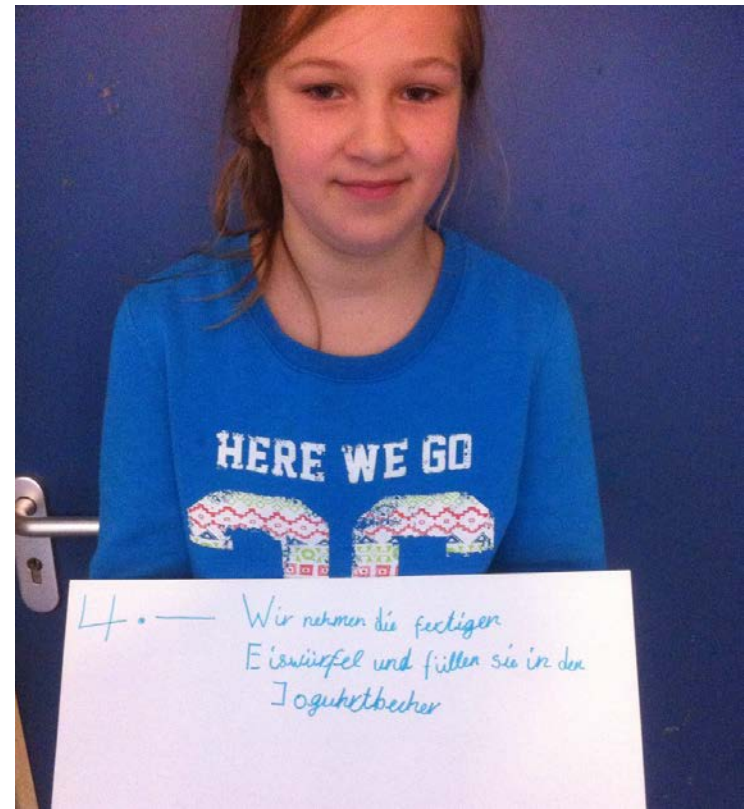 HERE WE GO
4.— Wir nehmen die fertigen
Eiswürfel und füllen sie in den
Joguhrtbecher